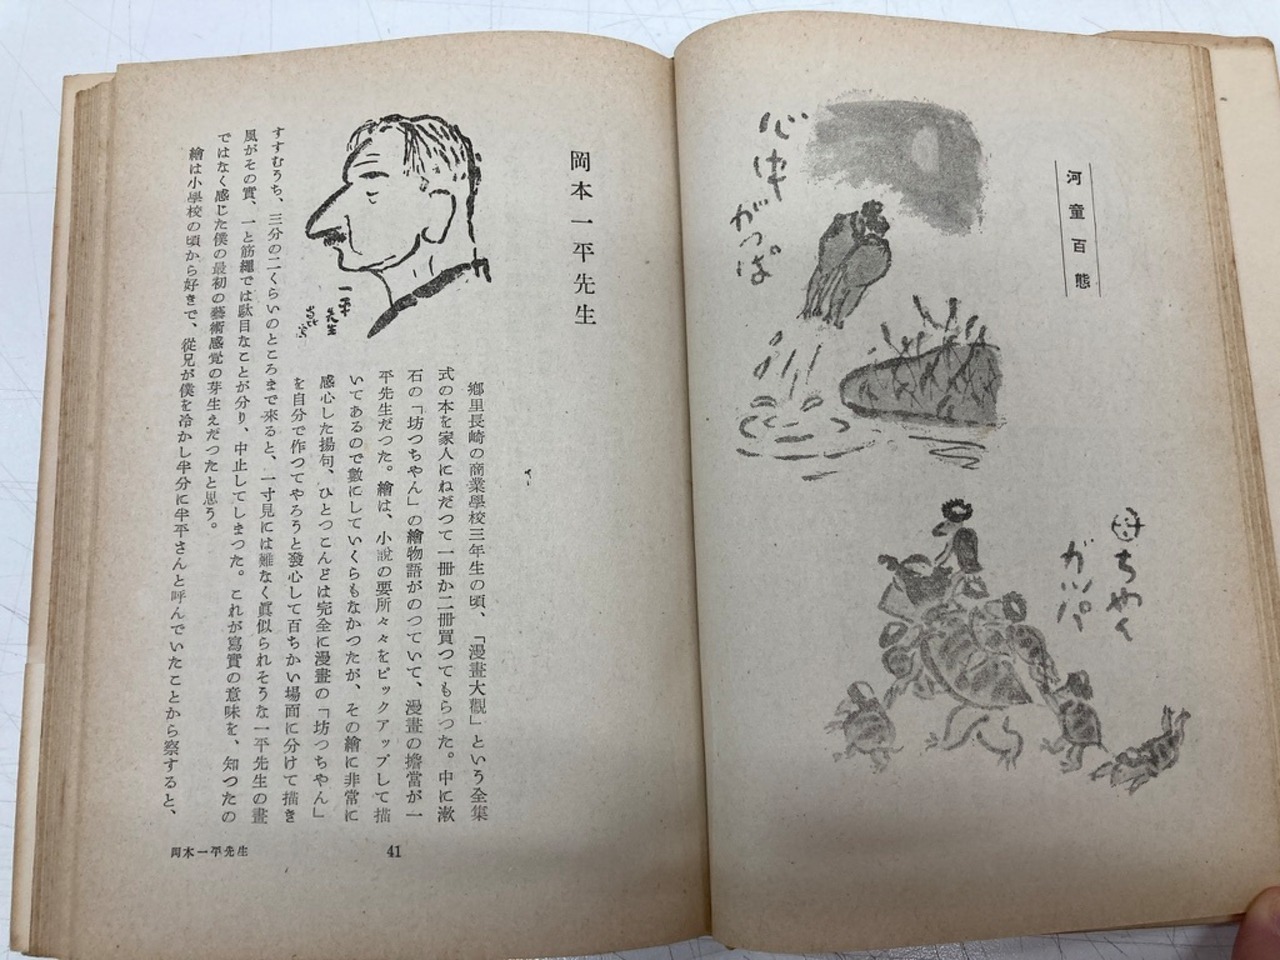 河童百態
心中
がっぱ
母ちやん
ガッパ
岡本一平先生
一平
先生
鄕里長崎の商業學校三年生の頃、「漫畫大觀」という全集
式の本を家人にねだつて一冊か二冊買つてもらつた。中に漱
石の「坊つちやん」の繪物語がのつていて、漫畫の擔當が一
平先生だつた。繪は、小說の要所々々をピックアップして描
いてあるので數にしていくらもなかつたが、その繪に非常に
感心した揚句、ひとつこんどは完全に漫畫の「坊つちやん」
を自分で作つてやろうと發心して百ちかい場面に分けて描き
すすむうち、三分の二くらいのところまで來ると、一寸見には難なく眞似られそうな一平先生の畫
風がその實、一と筋繩では駄目なことが分り、中止してしまつた。これが寫實の意味を、知つたの
ではなく感じた僕の最初の藝術感覺の芽生えだつたと思う。
繪は小學校の頃から好きで、從兄が僕を冷かし半分に半平さんと呼んでいたことから察すると、
岡本一平先生
41